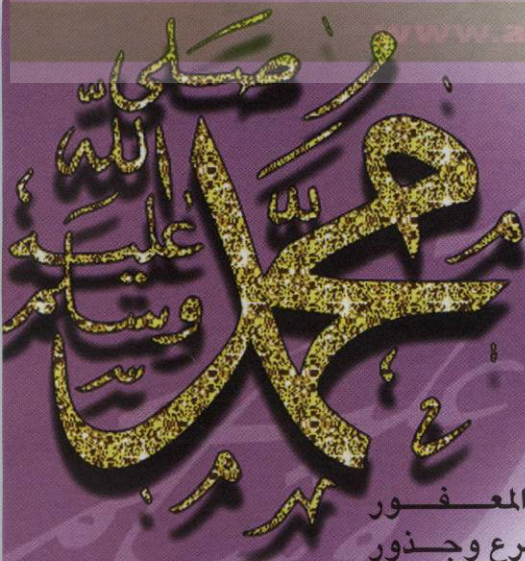 www.a
محمد
صلى
الله
عليه
وسلم
المعـفـور
رع وجـذور